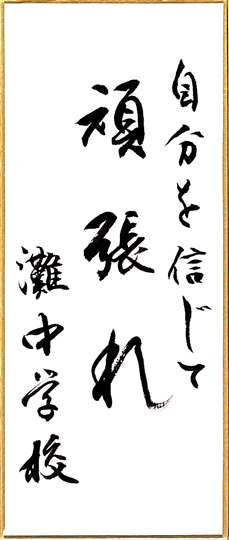 自分を信じて
頑張れ
灘中学校